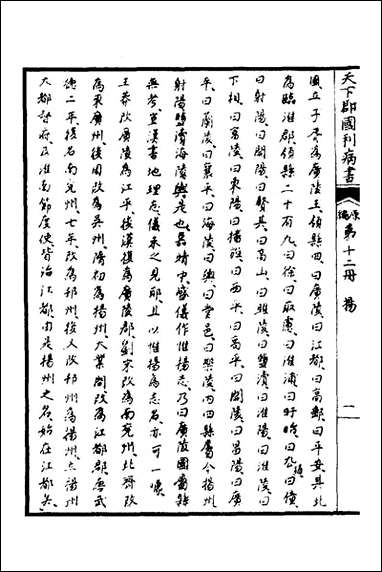 天下郡國利病書 原編第十二冊 揚 一
國立子胥為廣陵王領縣四曰廣陵曰江都曰高郵曰平安其北
為臨淮郡領縣二十有九曰徐曰取慮曰淮浦曰盱眙曰厹猶曰僮
曰射陽曰開陽曰贅其曰高山曰睢陵曰鹽瀆曰淮陰曰淮陵曰
下相曰富陵曰東陽曰播旌曰西平曰高平曰開陵曰昌陽曰廣
平曰蘭陵曰襄平曰海陵曰輿曰堂邑曰樂陵內四縣屬今揚州
射陽鹽瀆海陵輿是也嘉靖中盛儀作惟揚志乃曰廣陵國屬縣
無考豈漢書地理志儀未之見耶且以惟揚為志名亦可一噱
王莽改廣陵為江平後漢復為廣陵郡劉宋改為南兗州北齊改
為東廣州後周改為吳州隋初為揚州大業間改為江都郡唐武
德二年復名南兗州七年改為邗州後又改邗州為揚州立揚州
大都督府及淮南節度使皆治江都由是揚州之名始在江都矣